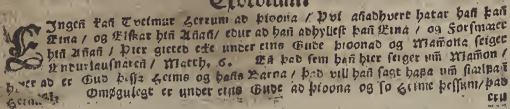 INgen kan Tveimur Herrum ad þioona / Þvi añadhvert hatar hañ þañ
Eina / og Elskar hiñ Añañ / edur ad hañ adhyllest þañ Eina / og Forsmaer
hiñ Añañ / Þier gieted ecke under eins Gude þioonad og Mamona seiger
Endurlausnareñ / Matth. 6. Ed þad sem hañ hier seiger um Mamon /
ad er Gud þessa Heims og hañs Barna / þad vill hañ sagt hafa um sialfañ
Omøgulegt er under eins Gude ad þioona og so Heime þessum / þad